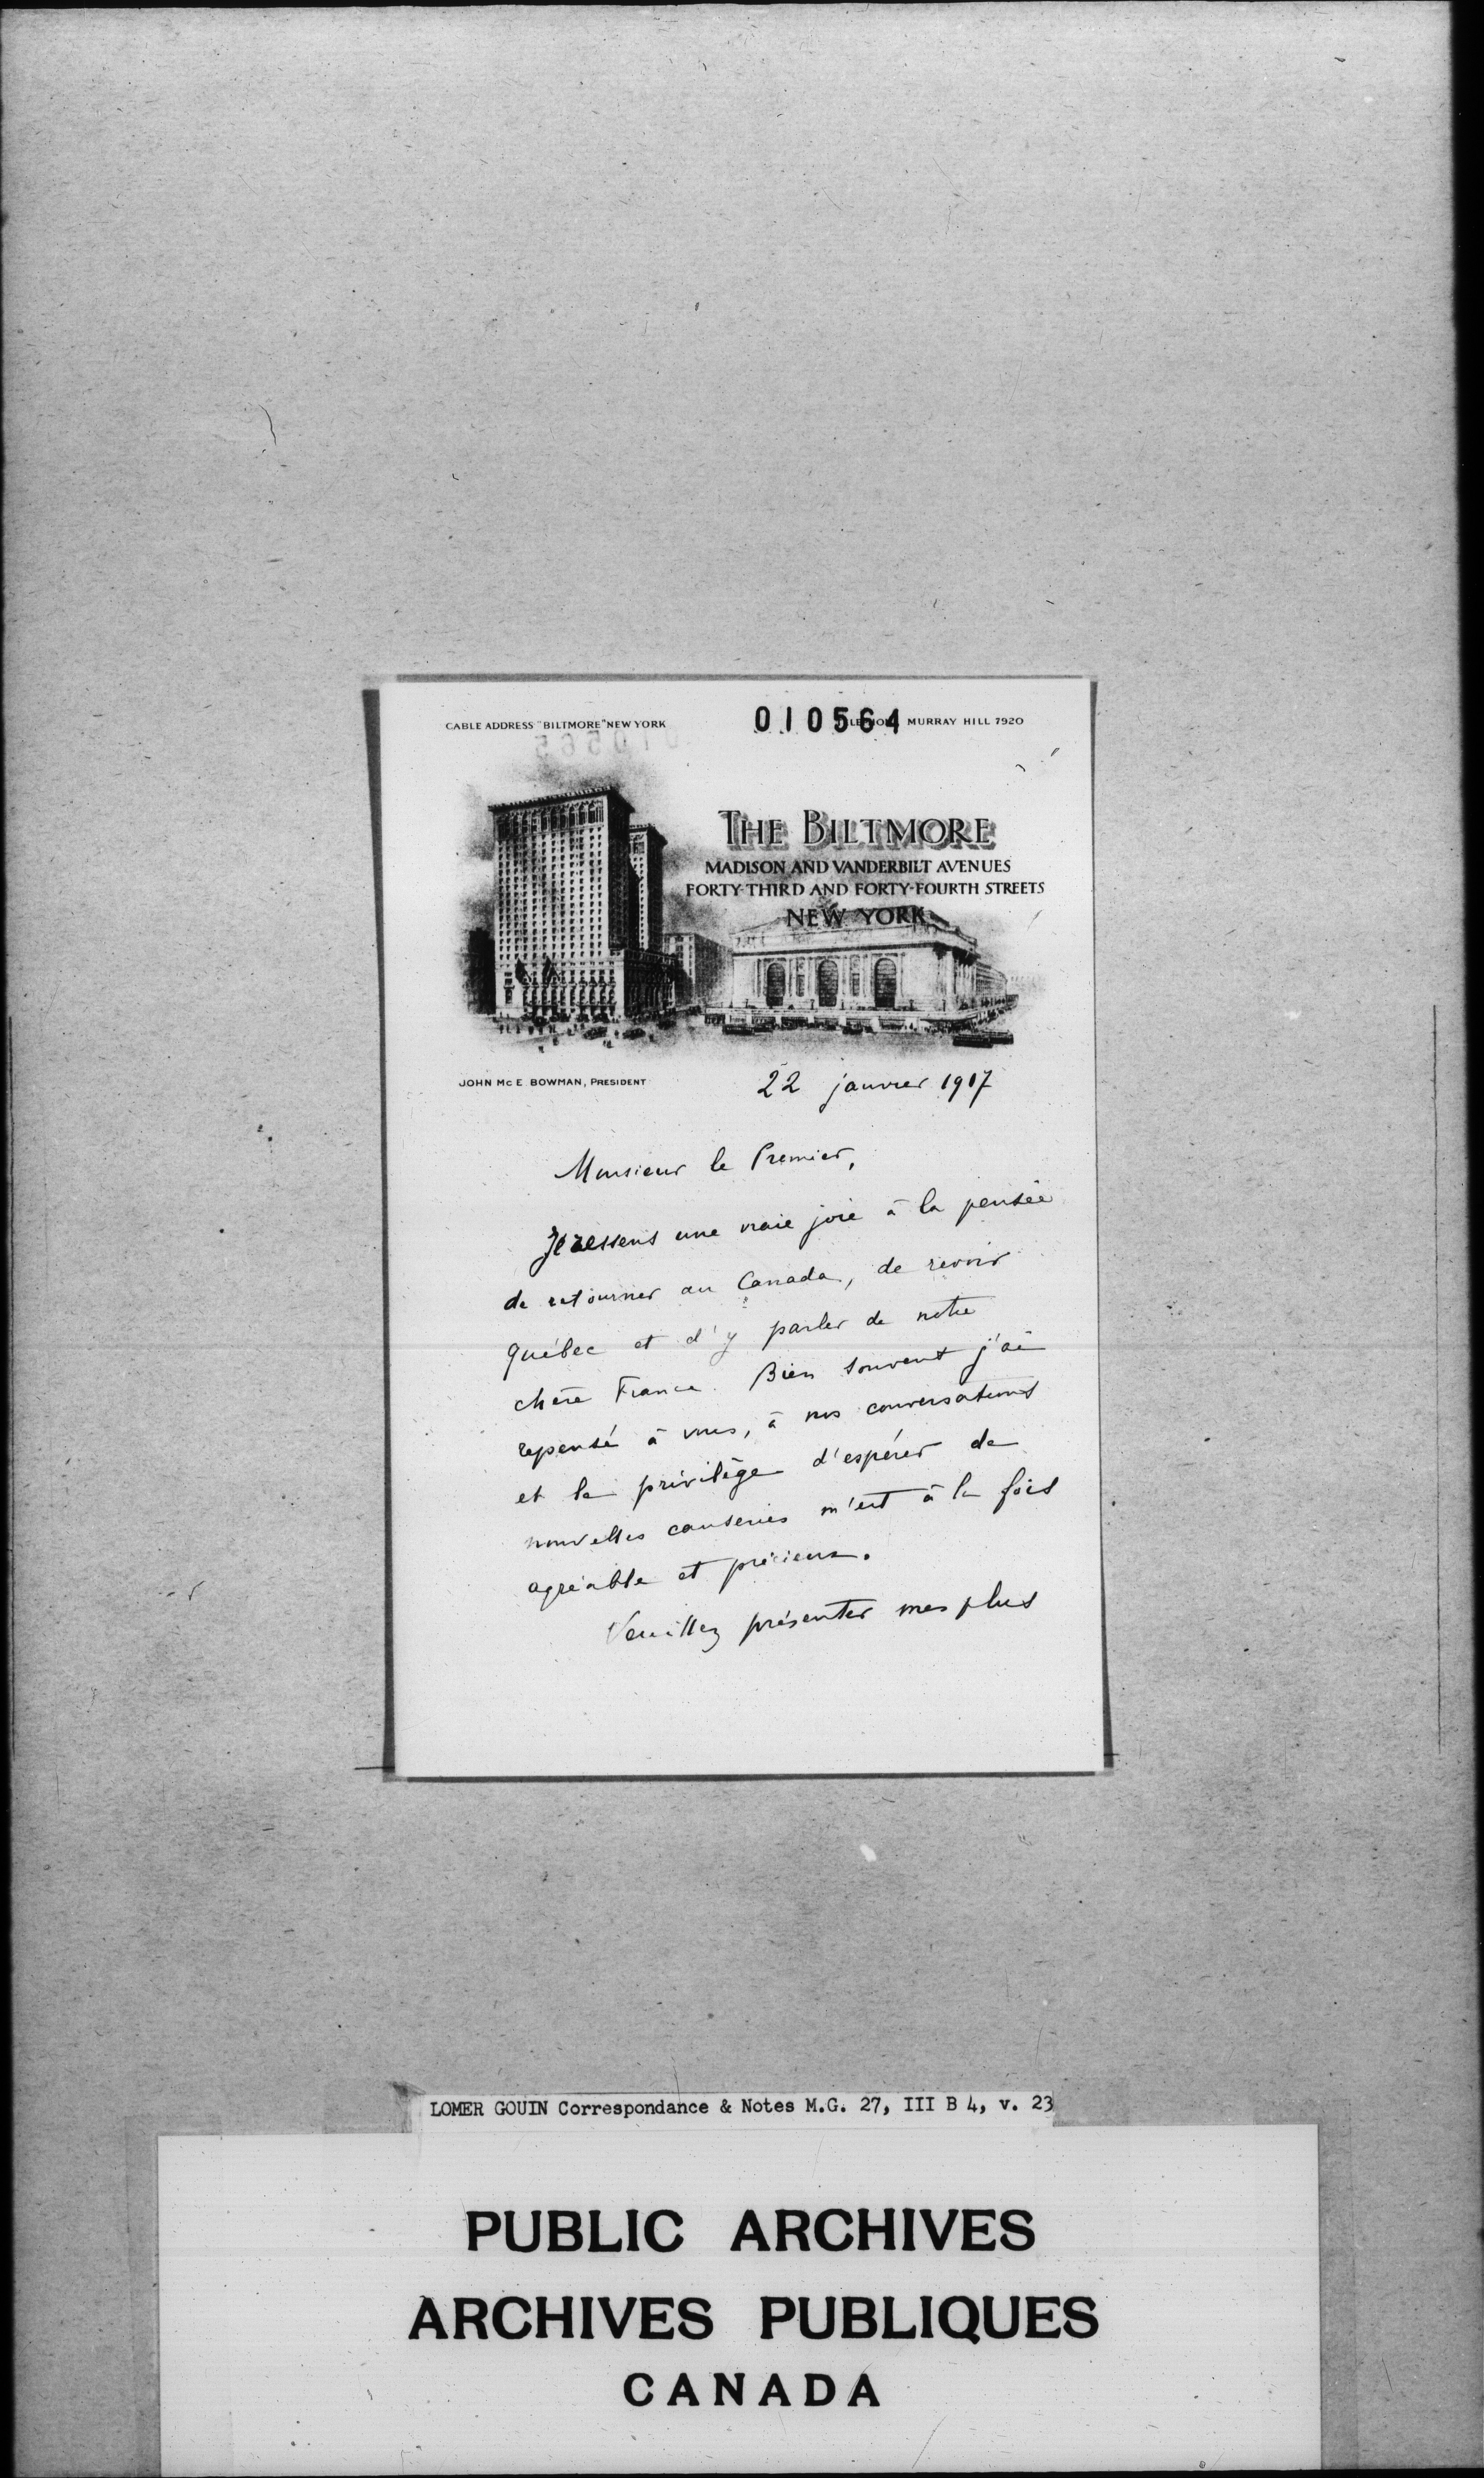 CABLE ADDRESS "BILTMORE" NEW YORK
010564 MURRAY HILL 7920
010565
THE BILTMORE
MADISON AND VANDERBILT AVENUES
FORTY-THIRD AND FORTY-FOURTH STREETS
NEW YORK
JOHN MC E. BOWMAN, PRESIDENT
22 janvier 1917
Monsieur le Premier,
Je ressens une vraie joie à la pensée
de retourner au Canada, de revoir
Québec et d'y parler de notre
chère France. Bien souvent j'ai
repensé à vous, à nos conversations
et le privilège d'espérer de
nouvelles causeries m'est à la fois
agréable et précieux.
Veuillez présenter mes plus
LOMER GOUIN Correspondance & Notes M.G. 27, III B 4, v. 23
PUBLIC ARCHIVES
ARCHIVES PUBLIQUES
CANADA